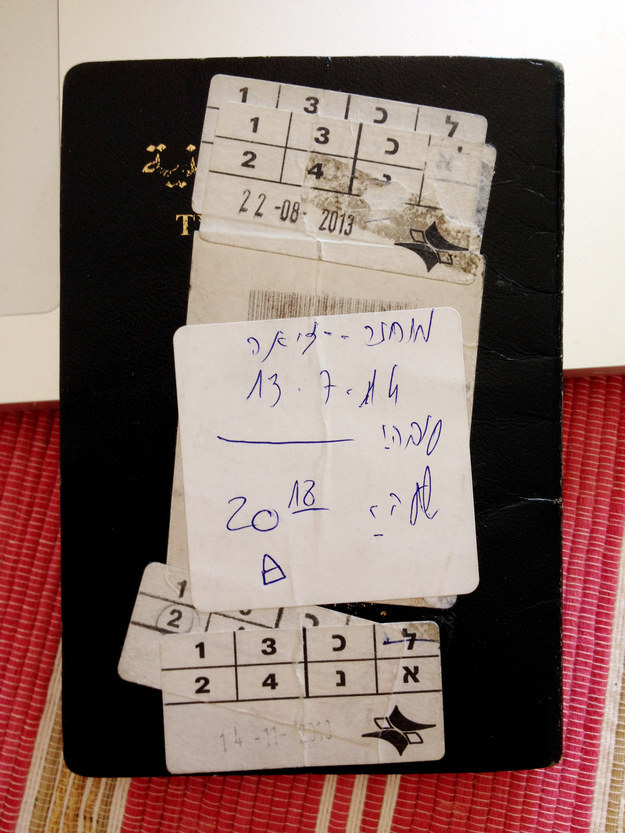 1 3 כ ל
1 3 כ
2 4
22-08-2013
מוחזר
13.7.14
סיבה:
שעה: 20 18
1
2
1 3 כ ל
2 4 נ א
14-11-